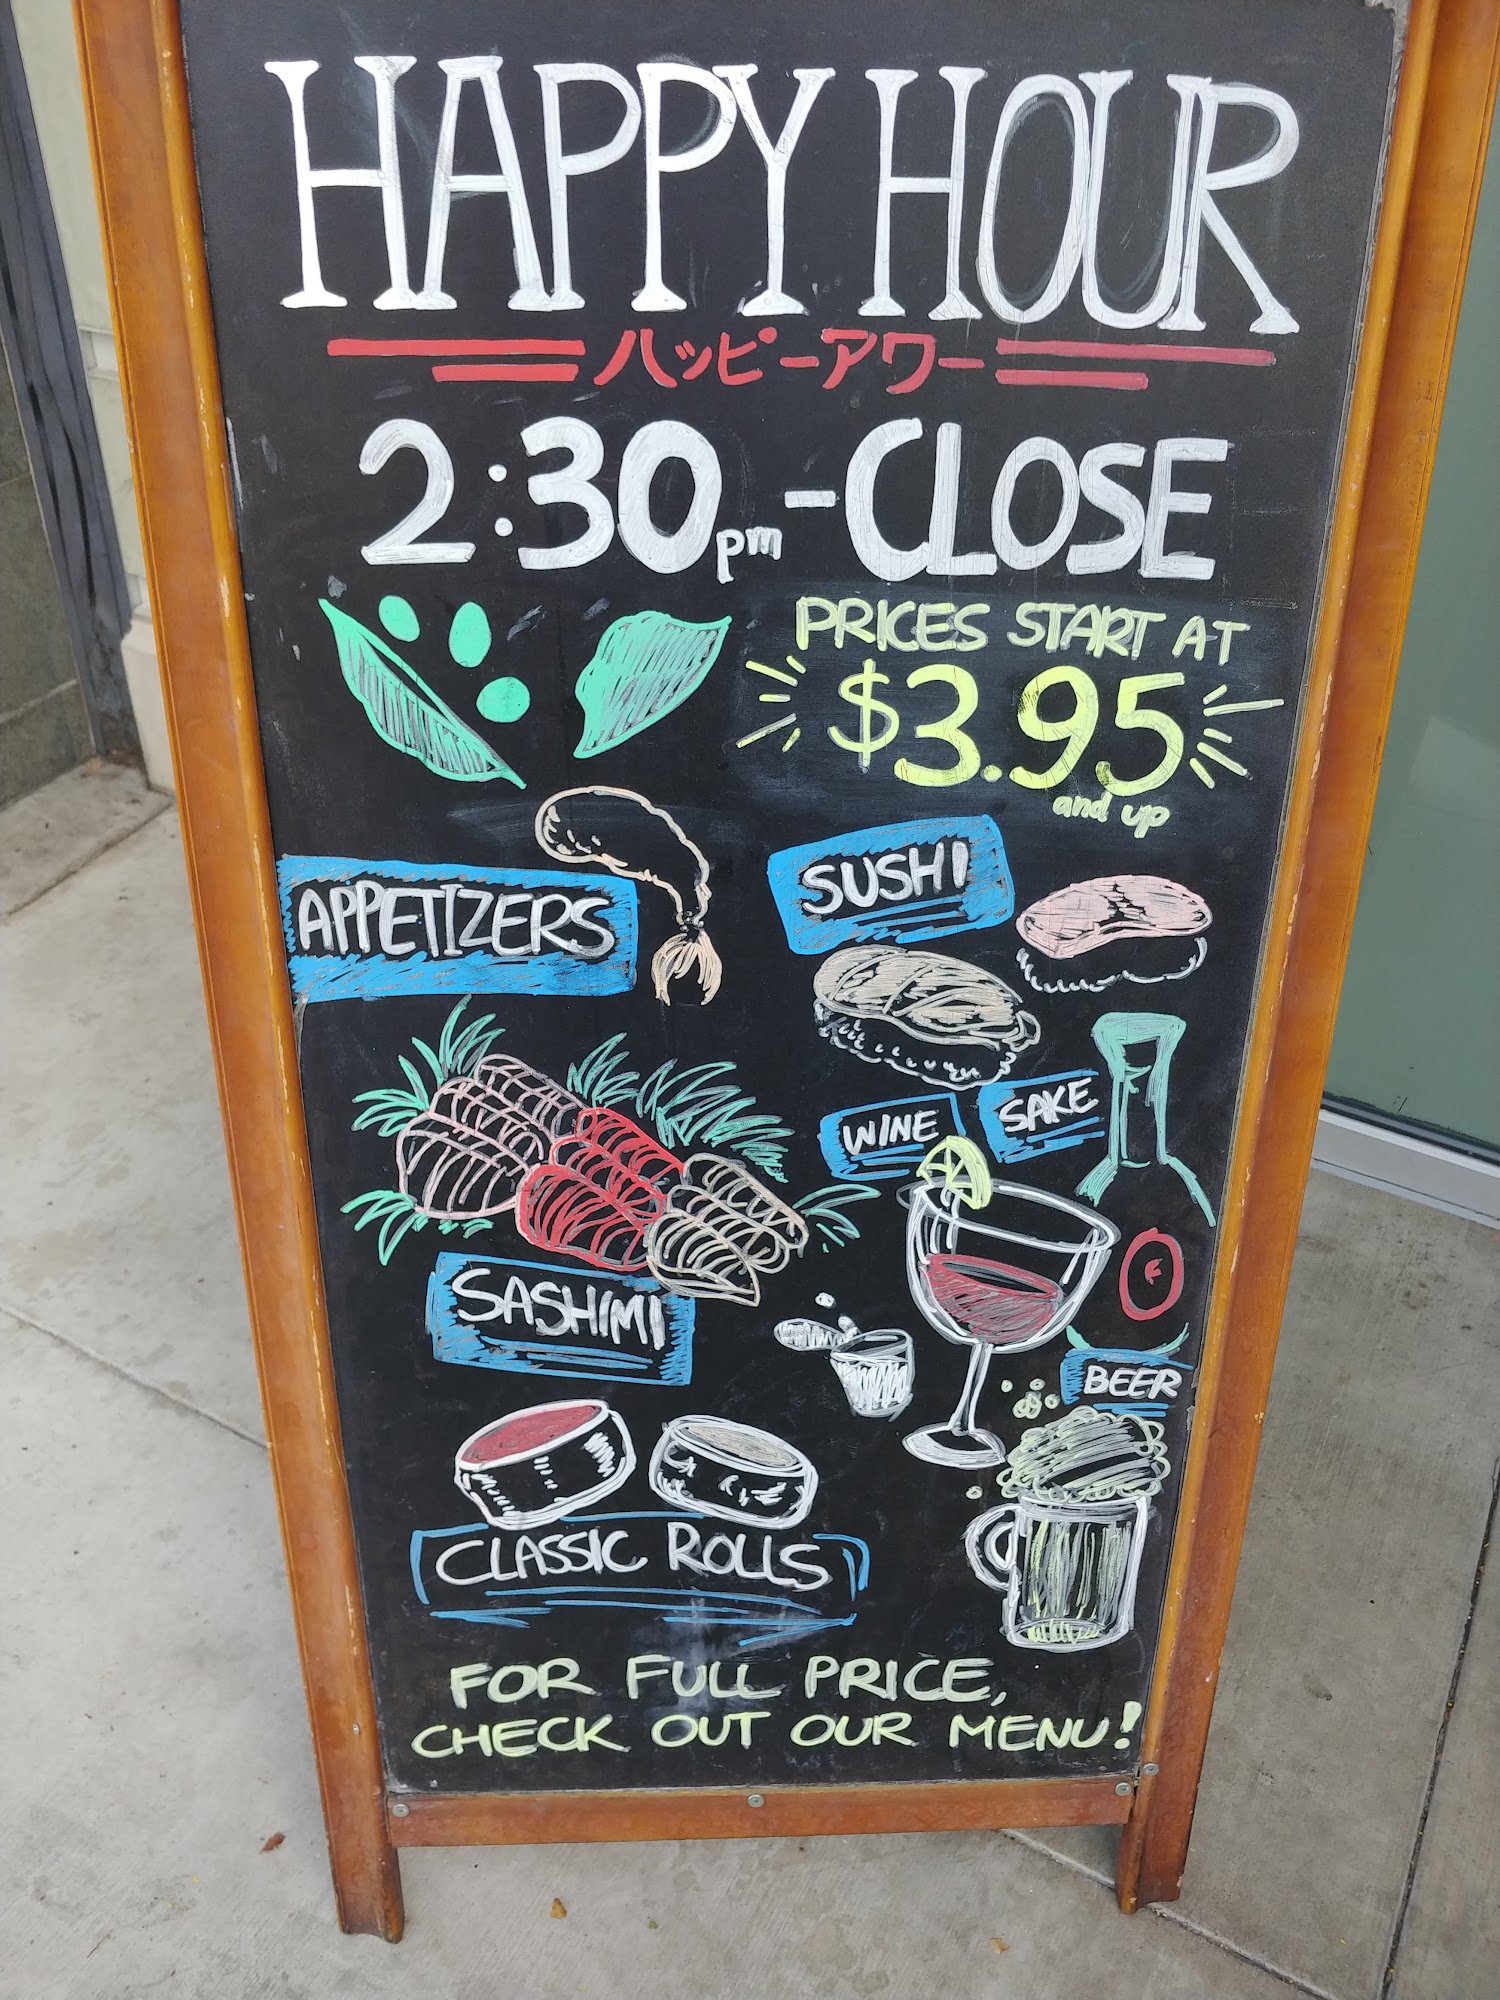 HAPPY HOUR
ハッピーアワー
2:30pm - CLOSE
PRICES START AT
$3.95
and up
APPETIZERS
SUSHI
WINE
SAKE
SASHIMI
BEER
CLASSIC ROLLS
FOR FULL PRICE,
CHECK OUT OUR MENU!